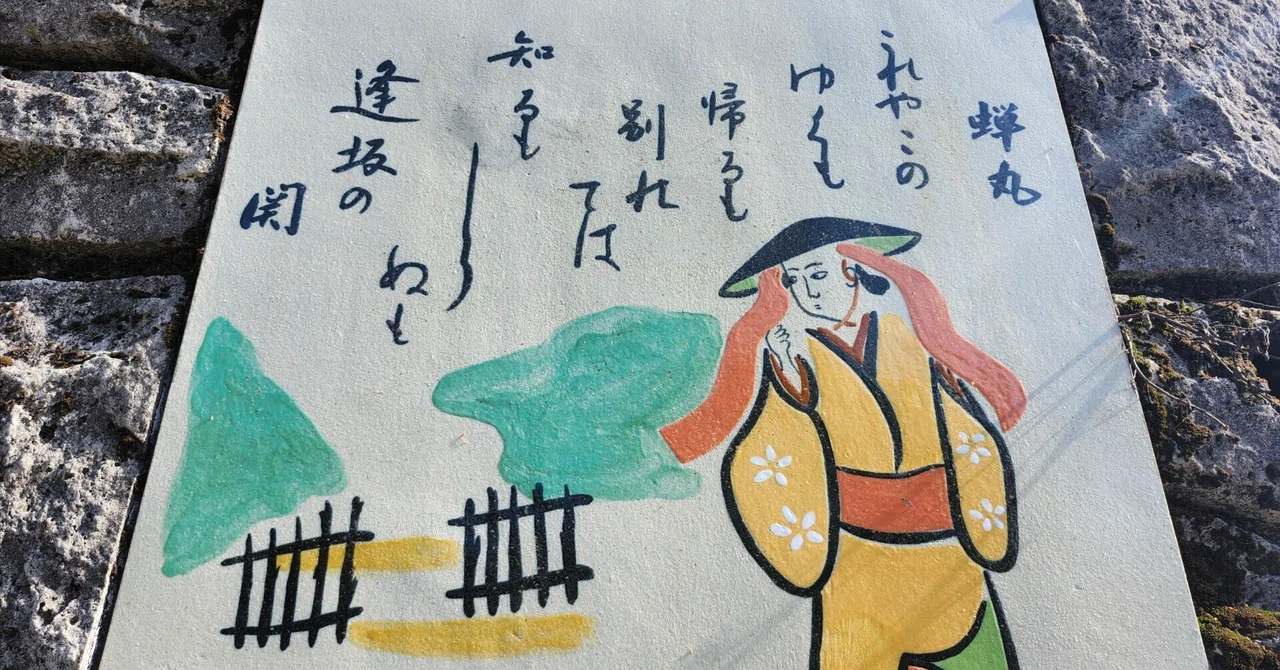 蝉丸
これやこの
ゆくも
帰るも
別れ
ては
知るも
しら
ぬも
逢坂の
関